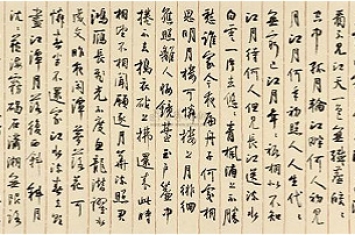 看不見江天一色無纖塵皎皎
空中孤月輪江畔何人初見
月江月何年初照人人生代代
無窮已江月年年祗相似不知
江月待何人但見長江送流水
白雲一片去悠悠青楓浦上不勝
愁誰家今夜扁舟子何處相
思明月樓可憐樓上月徘徊
應照離人妝鏡臺玉戶簾中
捲不去擣衣砧上拂還來此時
相望不相聞願逐月華流照君
鴻雁長飛光不度魚龍潛躍水
成文昨夜閒潭夢落花可
憐春半不還家江水流春去欲
盡江潭落月復西斜斜月
沉沉藏海霧碣石瀟湘無限路